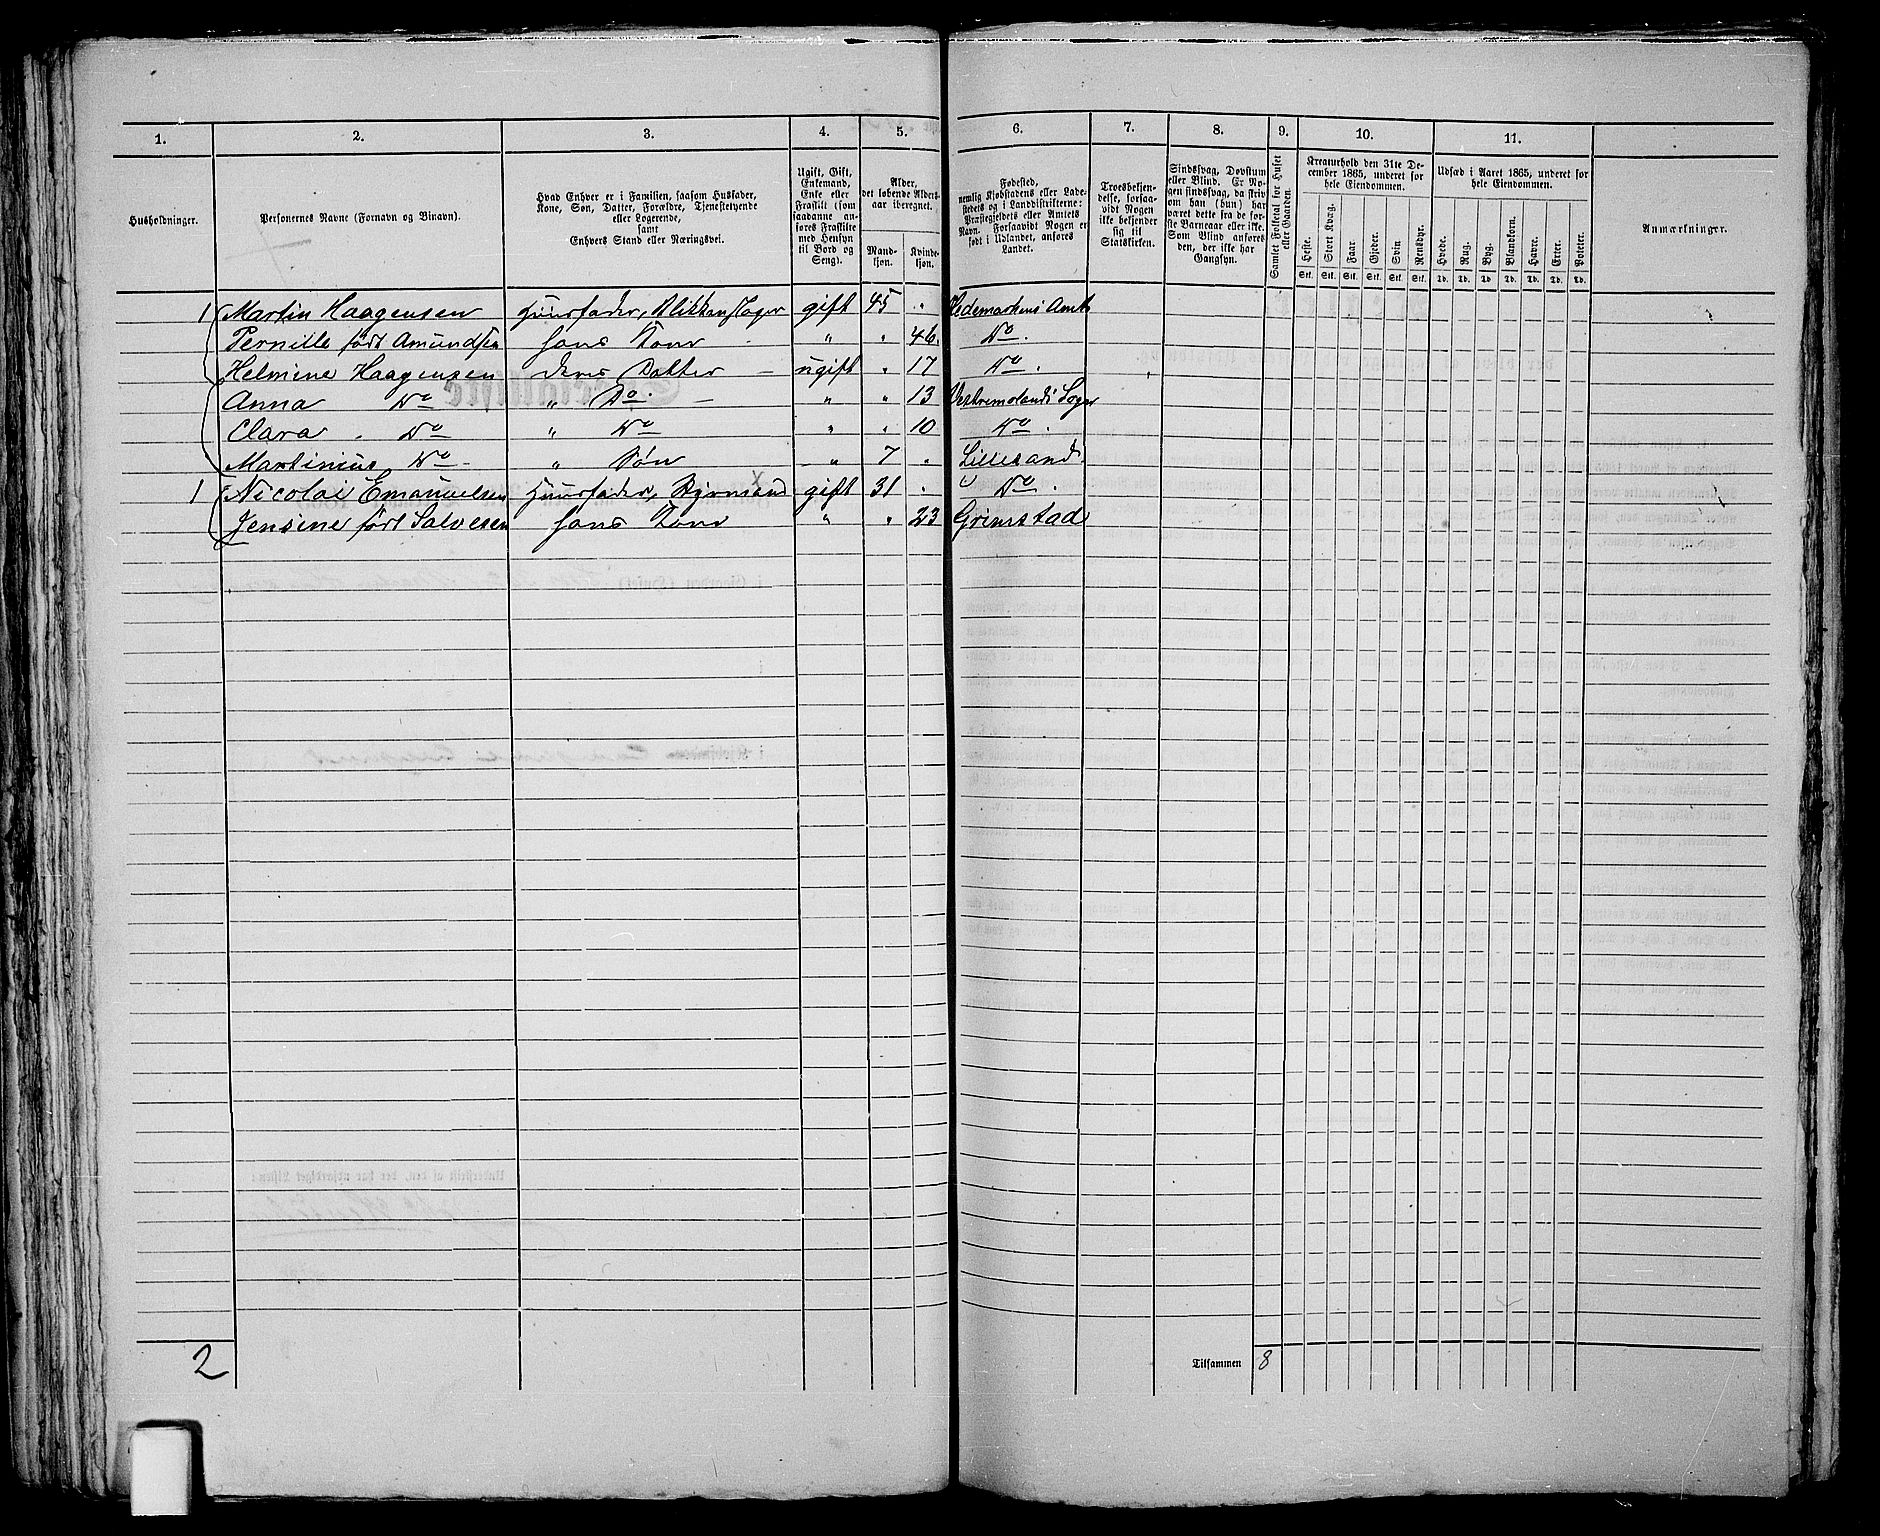 1. 2. 3. 4. 5. 6. 7. 8. 9. 10. 11.
Husholdninger.
Personernes Navne (Fornavn og Binavn).
Hvad Enhver er i Familien, saasom Husfader,
Kone, Søn, Datter, Forældre, Tjenestetyende
eller Logerende,
samt
Enhvers Stand eller Næringsvei.
Ugift, Gift,
Enkemand,
Enke eller
Fraskilt (som
saadanne an-
føres Fraskilte
med Hensyn
til Bord og
Seng).
Alder,
det løbende Alders-
aar iberegnet.
Mand-
kjøn.
Kvinde-
kjøn.
Fødested,
nemlig Kjøbstadens eller Lade-
stedets og i Landdistrikterne:
Præstegjeldets eller Amtets
Navn. Forsaavidt Nogen er
født i Udlandet, anføres
Landet.
Troesbekjen-
delse, forsaa-
vidt Nogen
ikke bekjender
sig til
Statskirken.
Sindssvag, Døvstum
eller Blind. Er No-
gen sindssvag, da skriv
om han (hun) har
været dette fra de før-
ste Barneaar eller ikke.
Som Blind anføres
den, der ikke har
Gangsyn.
Samlet Folketal for Huset
eller Gaarden.
Kreaturhold den 31te De-
cember 1865, underet for
hele Eiendommen.
Heste. Stort Kvæg. Faar. Gjeder. Svin. Rensdyr.
Stk. Stk. Stk. Stk. Stk. Stk.
Udsæd i Aaret 1865, underet for
hele Eiendommen.
Hvede. Rug. Byg. Blandkorn. Havre. Erter. Poteter.
Td. Td. Td. Td. Td. Td. Td.
Anmærkninger.
1 Martin Haagensen Huusfader, Blikkenslager gift 45 " Hedemarkens Amt
Pernille født Amundsen hans Kone " " 46. Do.
Helmine Haagensen deres Datter - ugift " 17 Do.
Anna Do " Do. - " " 13 Soger
Clara . Do " Do " " 10 Do.
Martinius Do - " Søn " 7 " Lillesand.
1 Nicolai Emanuelsen Huusfader, gift 31 " Do.
Jensine født Salvesen hans Kone " " 23 Grimstad
2
Tilsammen 8